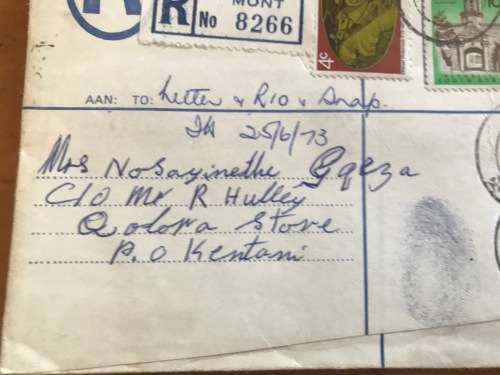 R
MONT
R No 8266
4c
AAN: TO: Letter & R10 & Snap.
25/6/73
Mrs Nosayinethe Gqeza
C/O Mr R Hulley
Qolora Store
P.O Kentani